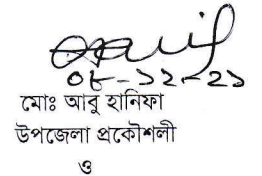 ০৮-১২-২১
মোঃ আবু হানিফা
উপজেলা প্রকৌশলী
ও